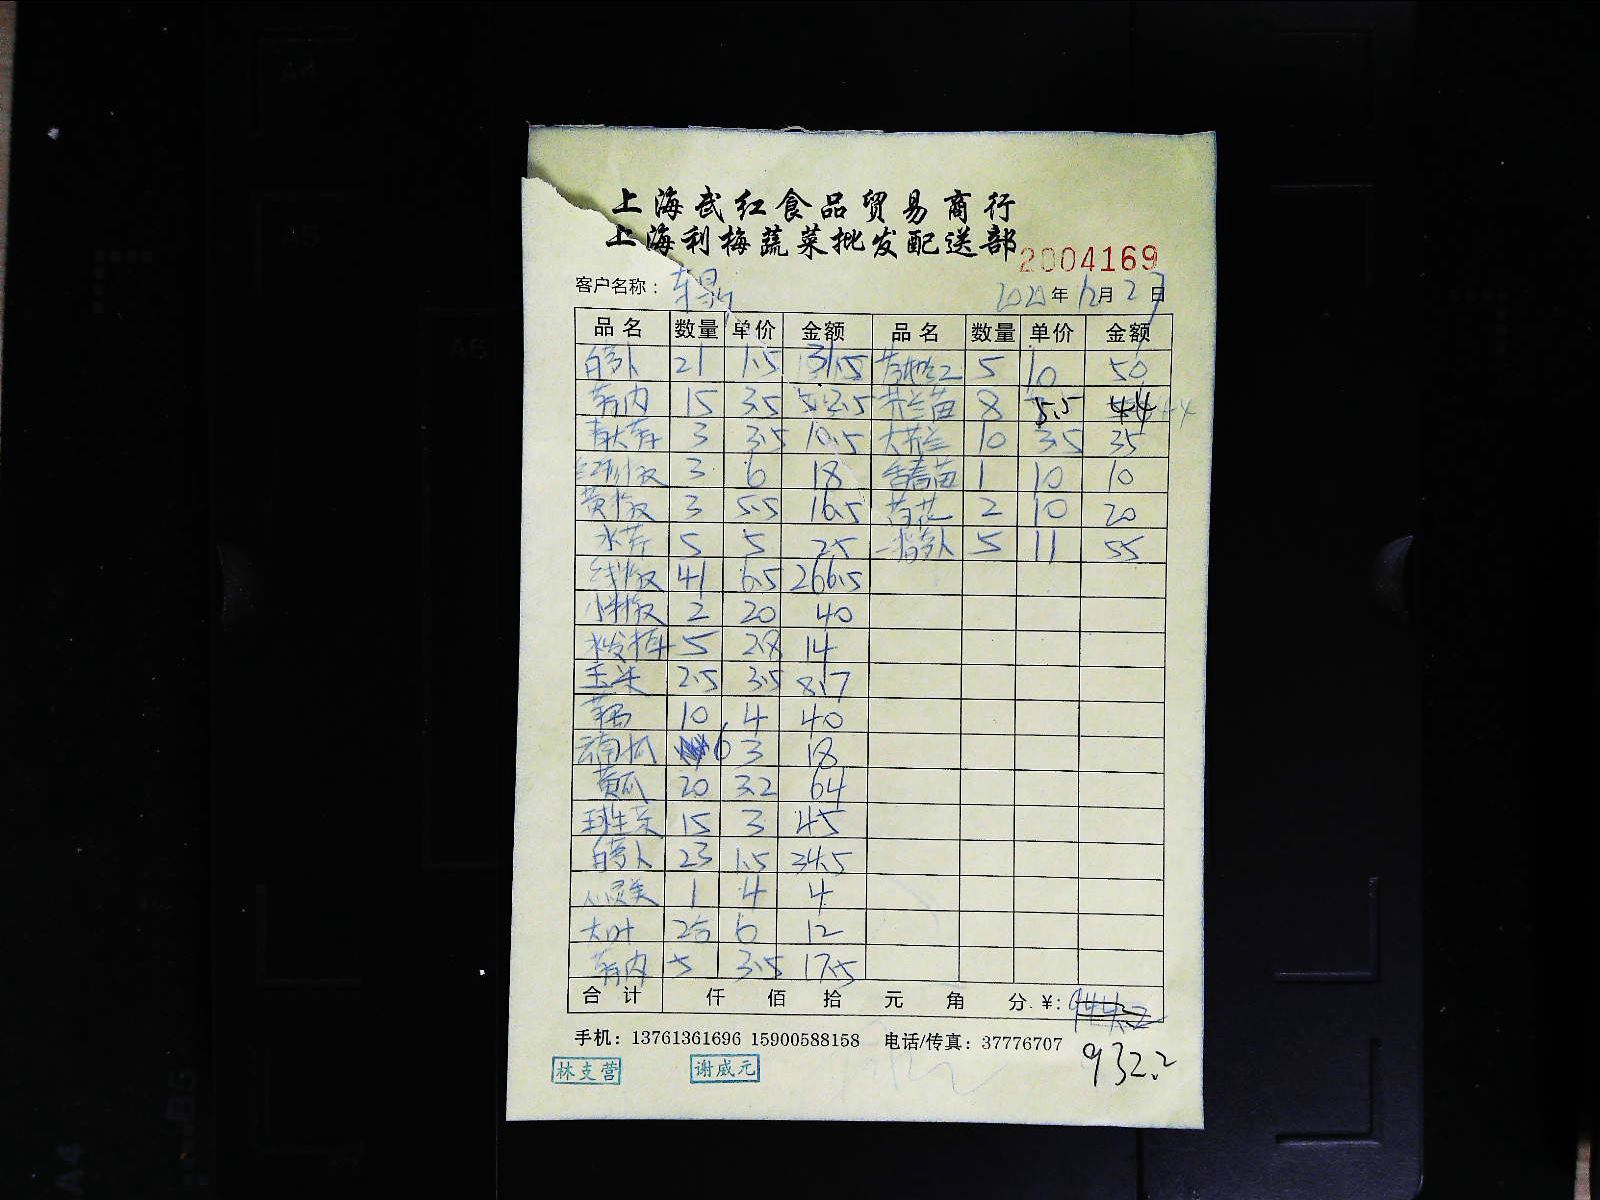 上海武红食品贸易商行
上海利梅蔬菜批发配送部
2004169
客户名称：
2020年12月27日
品名 数量 单价 金额 品名 数量 单价 金额
白萝卜 21 1.5 31.5 5 10 50
莴内 15 3.5 52.5 芥兰苗 8 5.5 44
3 3.5 10.5 大芥兰 10 3.5 35
红椒 3 6 18 香青苗 1 10 10
黄椒 3 5.5 16.5 2 10 20
水芹 5 5 25 萝卜 5 11 55
线椒 41 6.5 266.5
小米椒 2 20 40
水发 5 2.8 14
玉米 2.5 3.5 8.7
藕 10 4 40
云南瓜 6 3 18
黄瓜 20 3.2 64
球生菜 15 3 45
白萝卜 23 1.5 34.5
心灵美 1 4 4
大叶 2 6 12
莴内 5 3.5 17.5
合计 仟 佰 拾 元 角 分.¥:
手机：13761361696 15900588158 电话/传真：37776707
932.2
林支营 谢威元